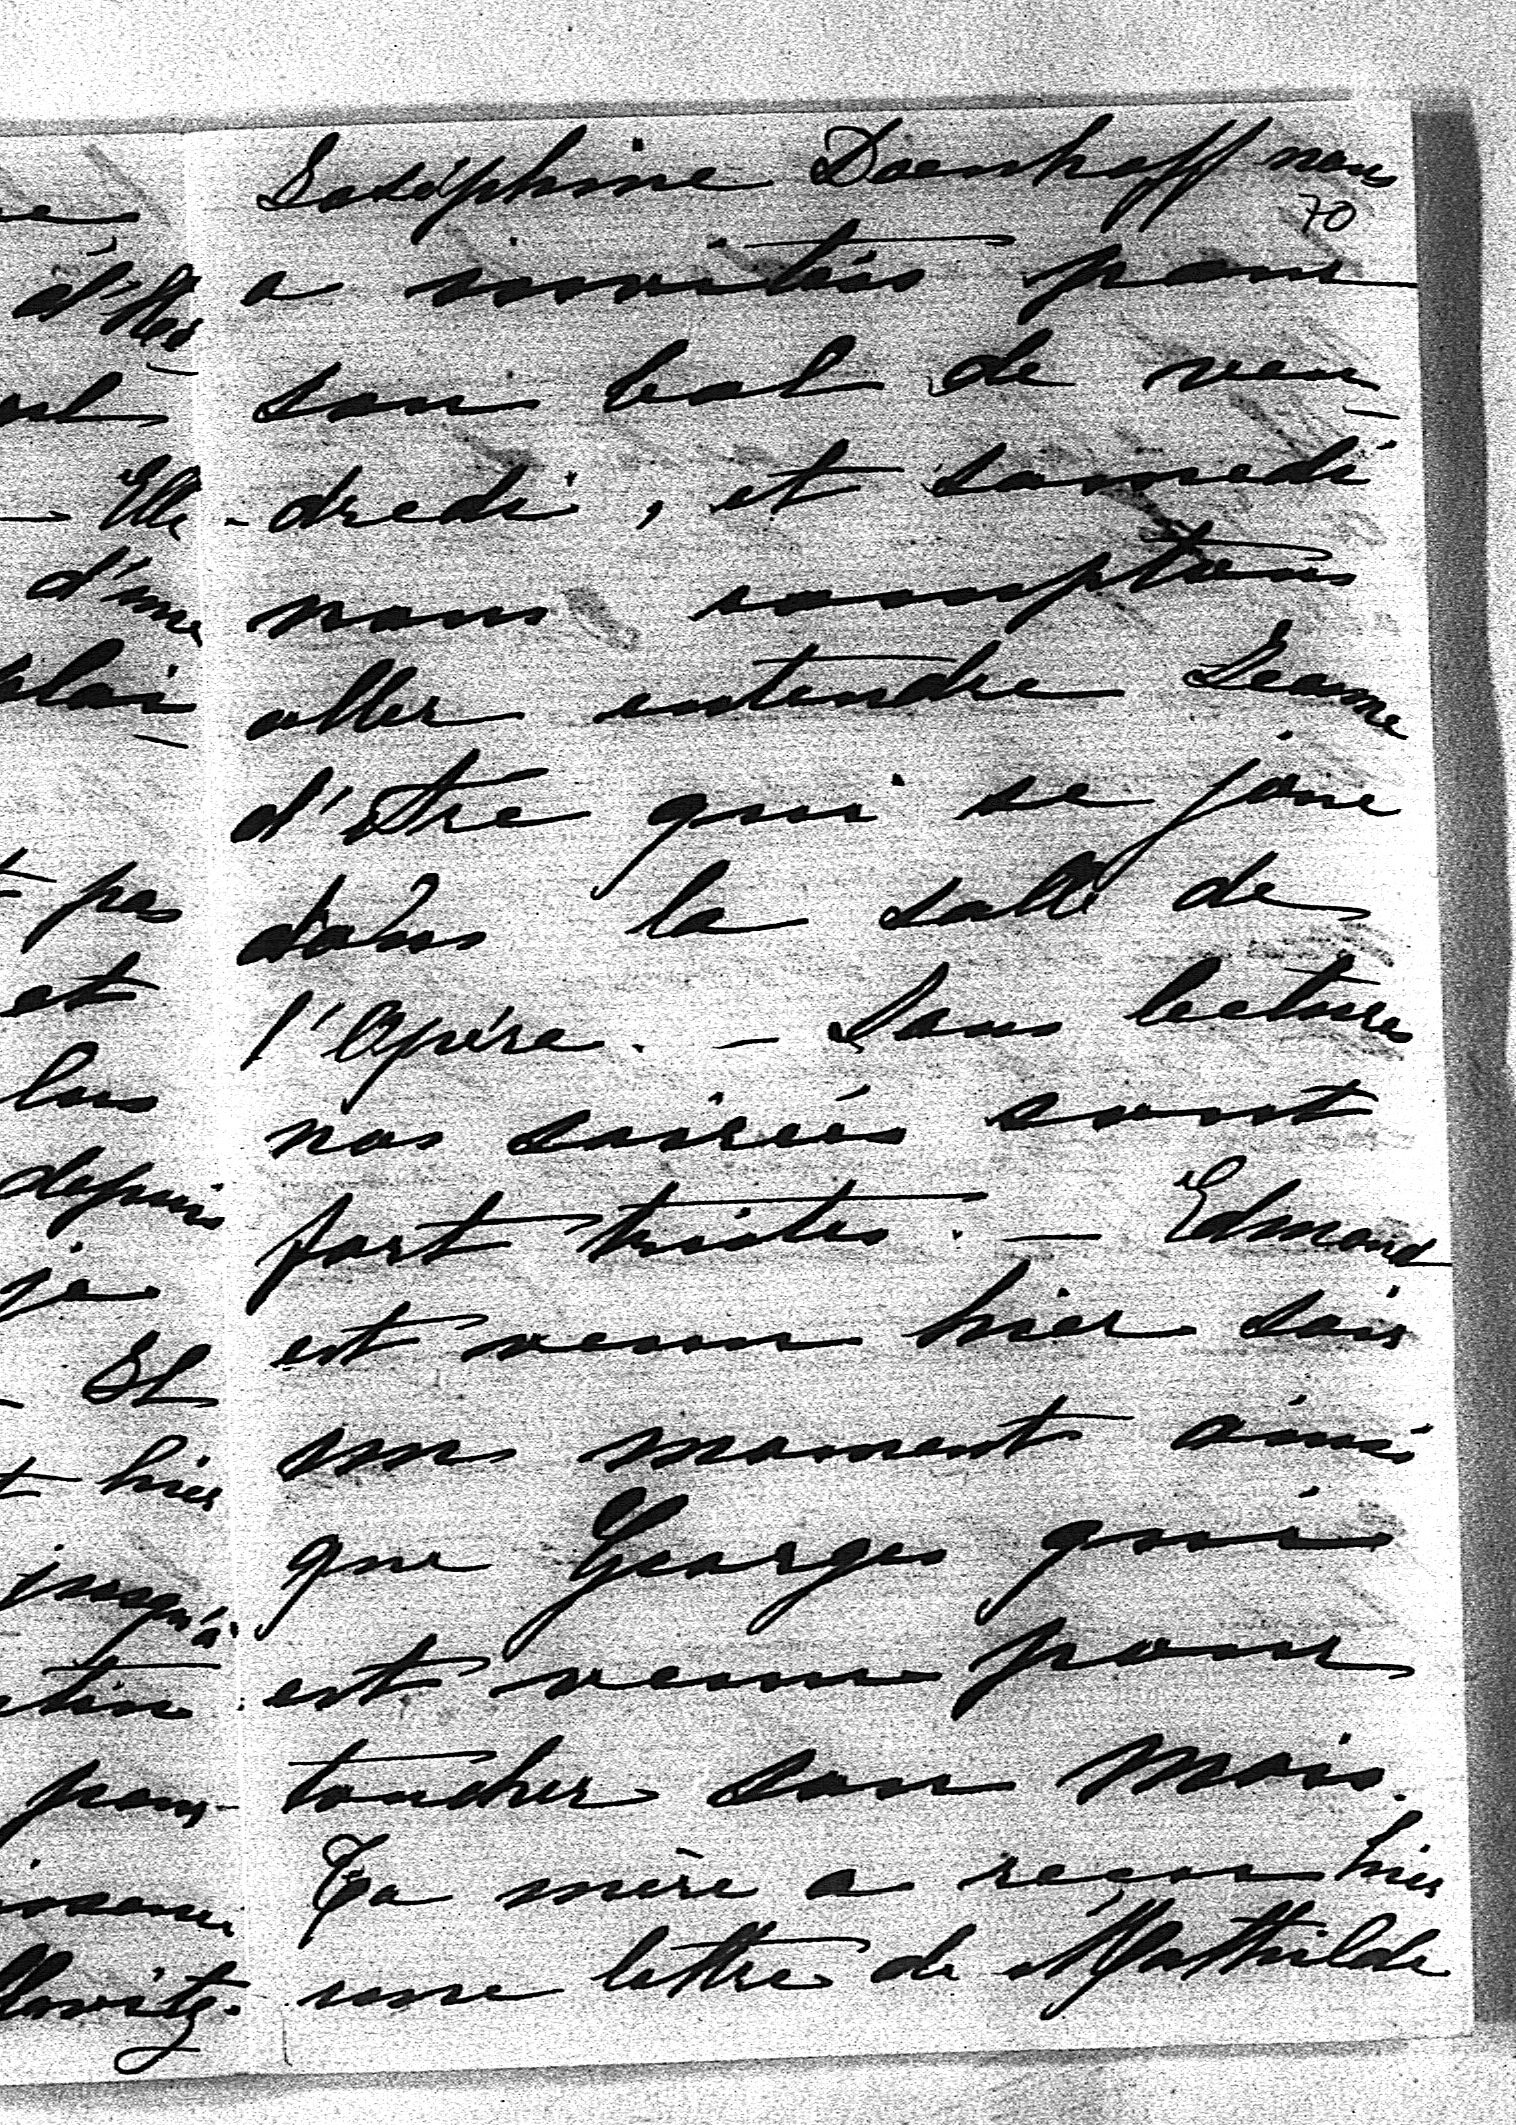 Joséphine Doenhoff nous
70
a invités pour
son bal de ven
dredi, et samedi
nous comptons
aller entendre Jeanne
d'Arc qui se joue
dans la salle de
l'Opéra. — Sans lectures
nos soirées sont
fort tristes. — Edmond
est venu hier soir
un moment ainsi
que Georges qui
est venu pour
toucher son mois.
Ta mère a reçu hier
une lettre de Mathilde
d'Her
Elle
d'une
plai
pas
et
depuis
je
Il
hier
jusqu'à
pour